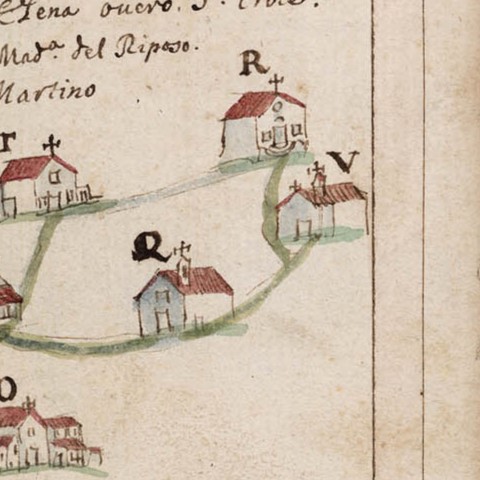 Elena overo. S. Croce.
Mad.ª del Riposo.
Martino
R
T
V
Q
O